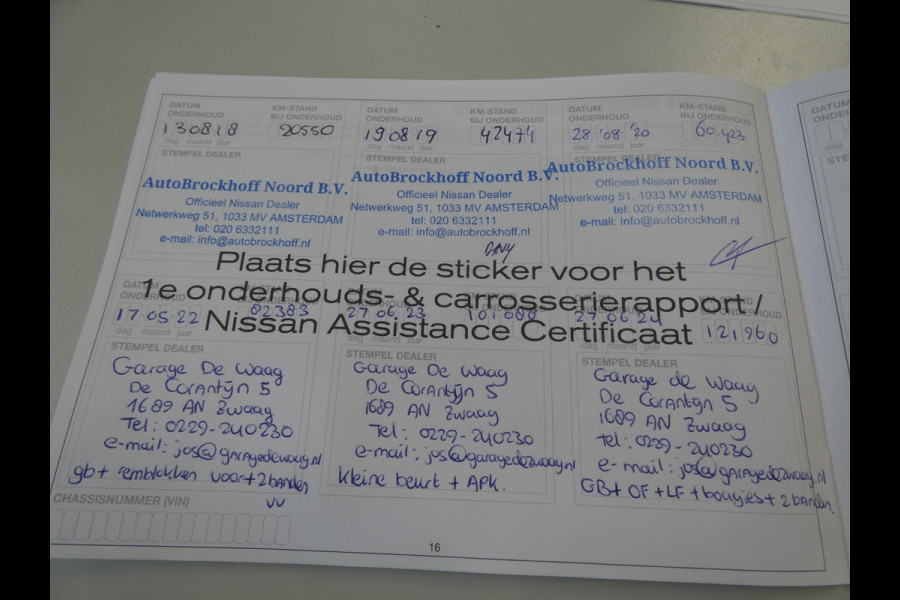 DATUM ONDERHOUD
KM-STAND BIJ ONDERHOUD
130818
20550
dag maand jaar
STEMPEL DEALER
AutoBrockhoff Noord B.V.
Officieel Nissan Dealer
Netwerkweg 51, 1033 MV AMSTERDAM
tel: 020 6332111
e-mail: info@autobrockhoff.nl
DATUM ONDERHOUD
KM-STAND BIJ ONDERHOUD
190819
42474
dag maand jaar
STEMPEL DEALER
AutoBrockhoff Noord B.V.
Officieel Nissan Dealer
Netwerkweg 51, 1033 MV AMSTERDAM
tel: 020 6332111
e-mail: info@autobrockhoff.nl
DATUM ONDERHOUD
KM-STAND BIJ ONDERHOUD
28 '08 '20
60.423
dag maand jaar
STEMPEL DEALER
AutoBrockhoff Noord B.V.
Officieel Nissan Dealer
Netwerkweg 51, 1033 MV AMSTERDAM
tel: 020 6332111
e-mail: info@autobrockhoff.nl
Plaats hier de sticker voor het
1e onderhouds- & carrosserierapport /
Nissan Assistance Certificaat
DATUM ONDERHOUD
17.05.22
82383
dag maand jaar
STEMPEL DEALER
Garage De Waag
De Corantijn 5
1689 AN Zwaag
Tel: 0229-240230
e-mail: jos@garagedewaag.nl
gb+ remblokken voor+2banden
vv
27 06 23
101.000
dag maand jaar
STEMPEL DEALER
Garage De Waag
De Corantijn 5
1689 AN Zwaag
Tel: 0229-240230
e-mail: jos@garagedewaag.nl
kleine beurt + APK.
KM-STAND
27 06 24
121960
dag maand jaar
STEMPEL DEALER
Garage de Waag
De Corantijn 5
1689 AN Zwaag
tel: 0229-240230
e-mail: jos@garagedewaag.nl
GB+OF+LF+bougies+2banden.
CHASSISNUMMER (VIN)
16